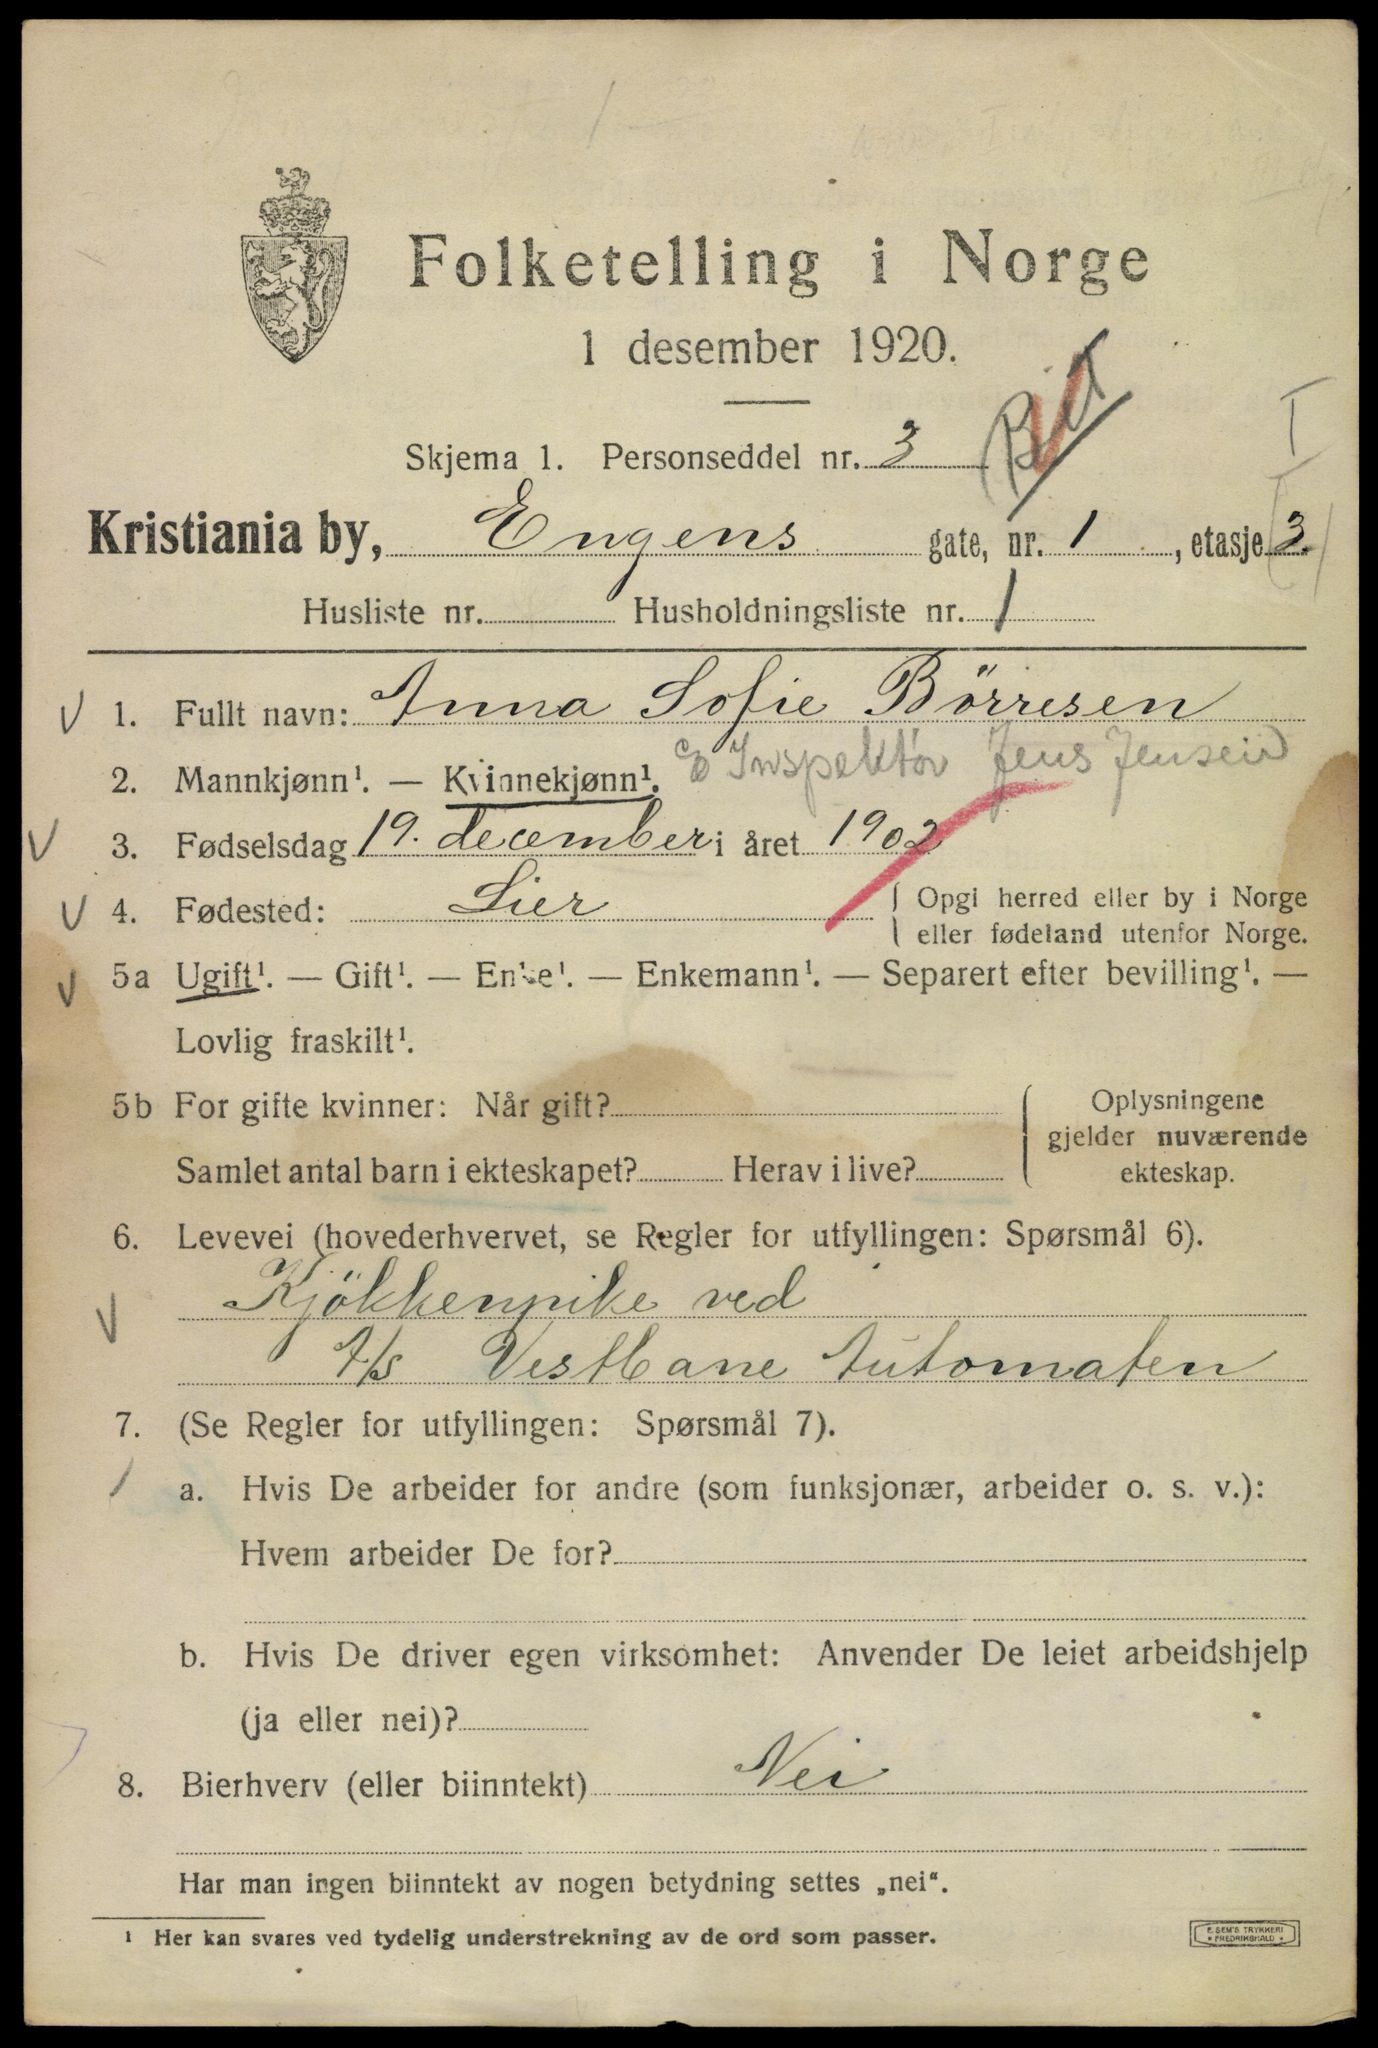 Folketelling i Norge
1 desember 1920.
Skjema 1. Personseddel nr. 3
Kristiania by, Engens gate, nr. 1, etasje 3.
I
Husliste nr. Husholdningsliste nr. 1
1. Fullt navn: Anna Sofie Börresen
2. Mannkjønn¹. — Kvinnekjønn¹. Inspektør Jens Jensen
3. Fødselsdag 19. december i året 1902
4. Fødested: Lier
Opgi herred eller by i Norge
eller fødeland utenfor Norge.
5a Ugift¹. — Gift¹. — Enke¹. — Enkemann¹. — Separert efter bevilling¹. —
Lovlig fraskilt¹.
5b For gifte kvinner: Når gift?
Samlet antal barn i ekteskapet? Herav i live?
Oplysningene
gjelder nuværende
ekteskap.
6. Levevei (hovederhvervet, se Regler for utfyllingen: Spørsmål 6).
Kjökkenpike ved
A/S Vestbane Automaten
7. (Se Regler for utfyllingen: Spørsmål 7).
a. Hvis De arbeider for andre (som funksjonær, arbeider o. s. v.):
Hvem arbeider De for?
b. Hvis De driver egen virksomhet: Anvender De leiet arbeidshjelp
(ja eller nei)?
8. Bierhverv (eller biinntekt) Nei
Har man ingen biinntekt av nogen betydning settes „nei“.
¹ Her kan svares ved tydelig understrekning av de ord som passer.
E. SEM'S TRYKKERI
FREDRIKSHALD